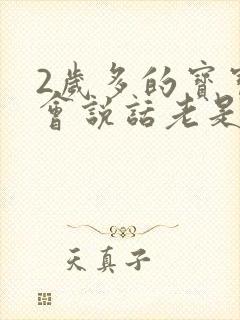 2歲多的寶
會說話老是
天真子